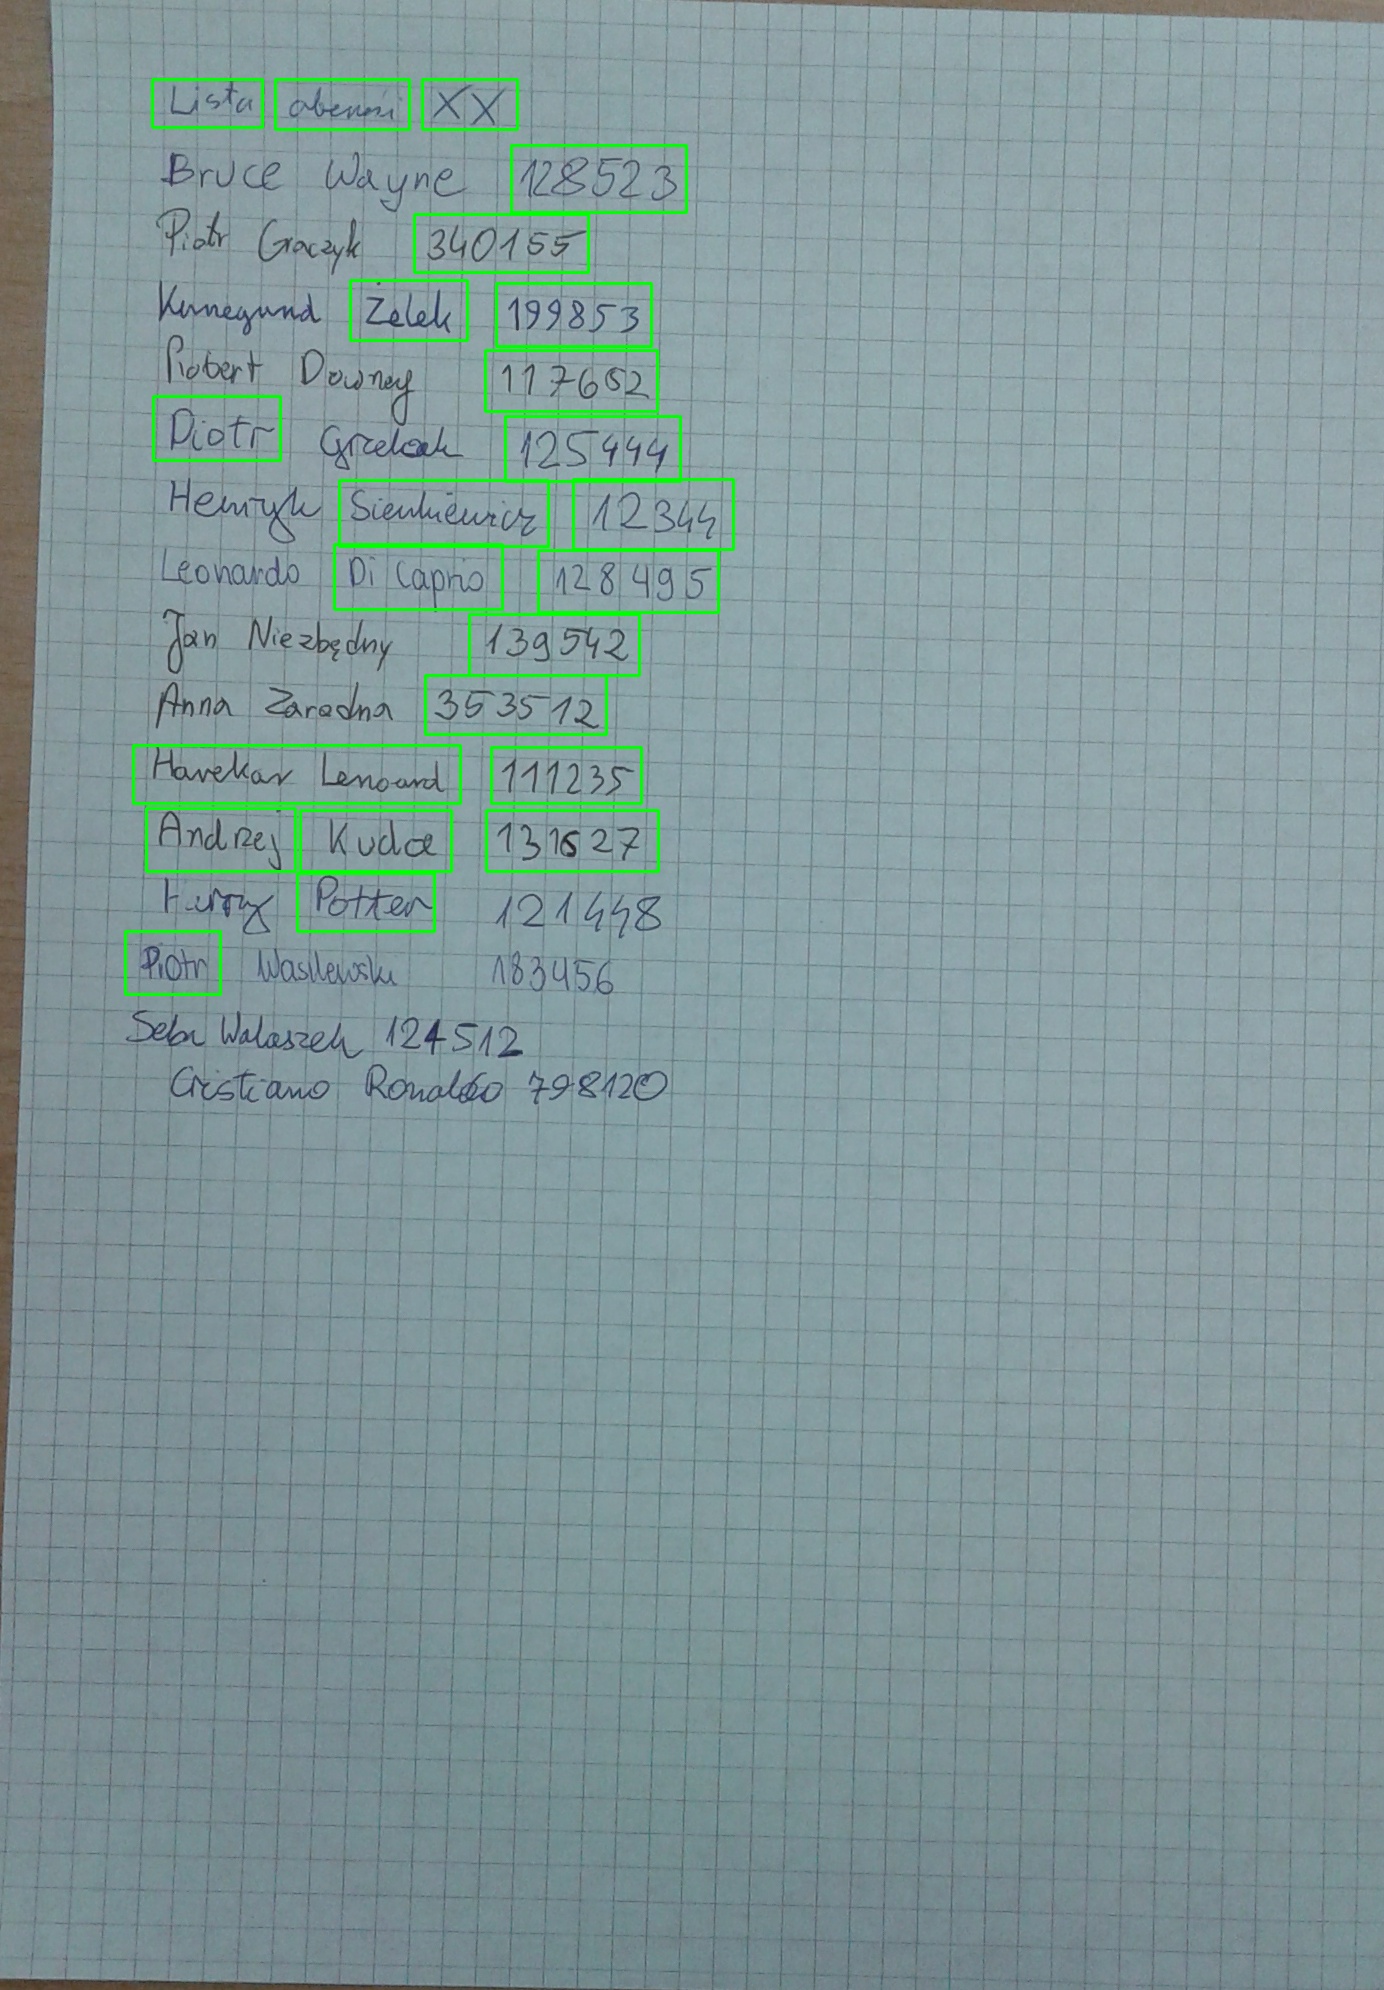 Lista XX
Bruce Wayne 128523
Piotr Graczyk 340155
Kunegund Żelek 199853
Robert Downey 117652
Piotr 125444
Henryk Sienkiewicz 12344
Leonardo Di Caprio 128495
Jan Niezbędny 139542
Anna Zaradna 353512
Havekar Lenoard 111235
Andrzej Kudła 131627
Potter 121448
Piotr Wasilewski 183456
Seba Walaszek 124512
Cristiano Ronaldo 798120